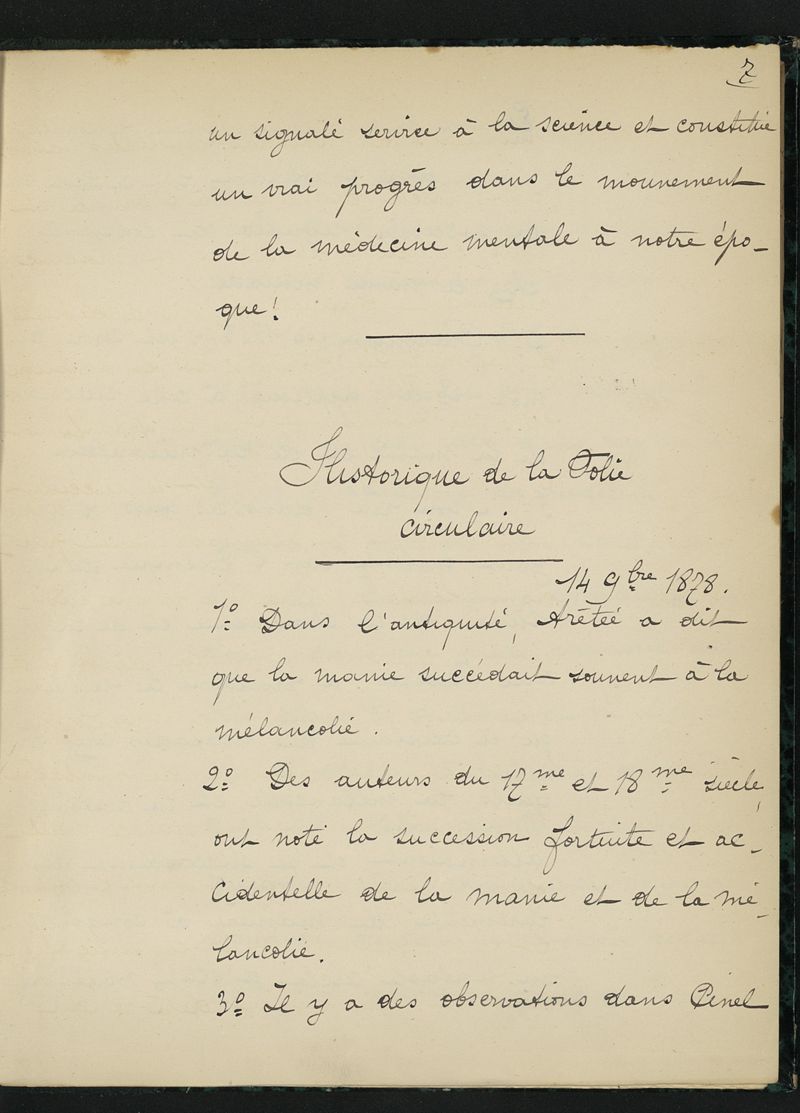 7
un signalé service à la science et constitue
un vrai progrès dans le mouvement
de la médecine mentale à notre épo-
que!
Historique de la Folie
circulaire
14 9bre 1878.
1º Dans l'antiquité, Arêtée a dit
que la manie succédait souvent à la
mélancolie.
2º Des auteurs du 17me et 18me siècle,
ont noté la succession fortuite et ac-
cidentelle de la manie et de la mé-
lancolie.
3º Il y a des observations dans Pinel